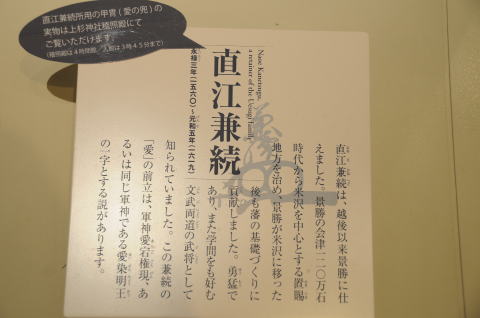 直江兼続所用の甲冑（愛の兜）の
実物は上杉神社稽照殿にて
ご覧いただけます。
（稽照殿は４時閉館／入館は３時４５分まで）
Naoe Kanetsugu,
a retainer of the Uesugi family
直江兼続
永禄三年（一五六〇）～元和五年（一六一九）
直江兼続は、越後以来景勝に仕
えました。景勝の会津一二〇万石
時代から米沢を中心とする置賜
地方を治め、景勝が米沢に移った
後も藩の基礎づくりに
貢献しました。勇猛で
あり、また学問をも好む
文武両道の武将として
知られていました。この兼続の
「愛」の前立は、軍神愛宕権現、あ
るいは同じ軍神である愛染明王
の一字とする説があります。